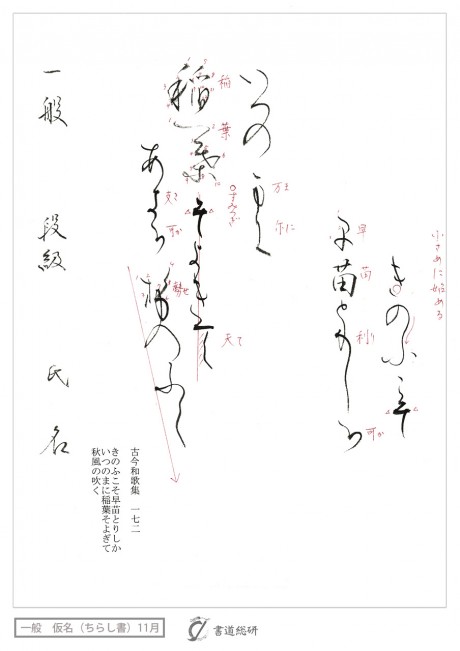 小さめに始める
きのふこそ
早苗とりしか
早
苗
利り
可か
いつのまに
万ま
尓に
稲葉そよきて
稲
葉
○すみつぎ
天て
あきか
支き
可か
勢せ
風のふく
一般
段級
氏名
古今和歌集 一七二
きのふこそ早苗とりしか
いつのまに稲葉そよぎて
秋風の吹く
一般 仮名（ちらし書）11月
書道総研